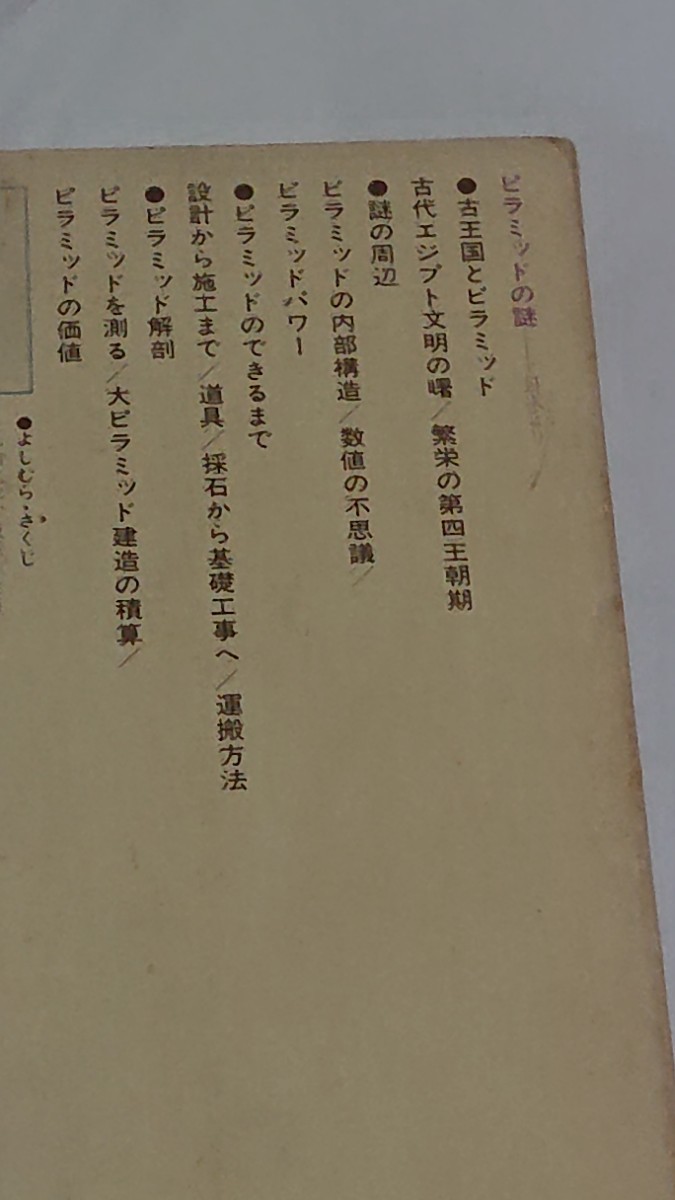 ピラミッドの謎
●古王国とピラミッド
古代エジプト文明の曙／繁栄の第四王朝期
●謎の周辺
ピラミッドの内部構造／数値の不思議／
ピラミッドパワー
●ピラミッドのできるまで
設計から施工まで／道具／採石から基礎工事へ／運搬方法
●ピラミッド解剖
ピラミッドを測る／大ピラミッド建造の積算／
ピラミッドの価値
●よしむら・さくじ